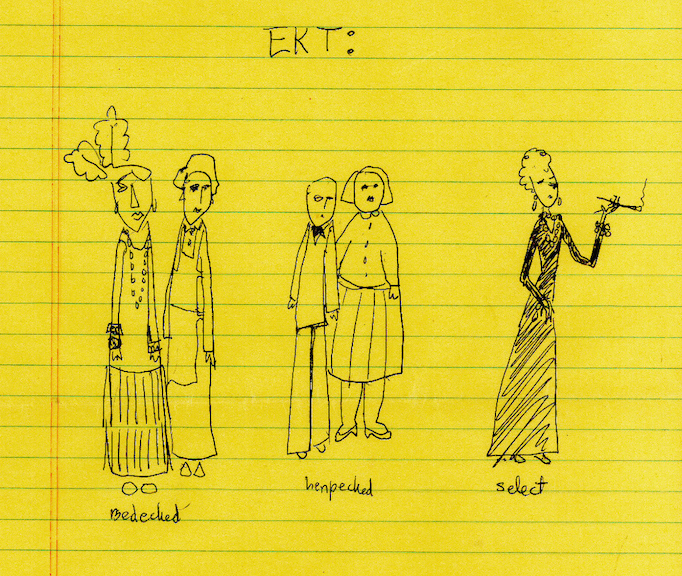 EKT:
Bedecked
henpecked
select